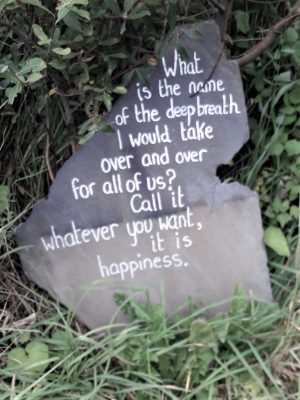 What
is the name
of the deep breath
I would take
over and over
for all of us?
Call it
whatever you want,
it is
happiness.